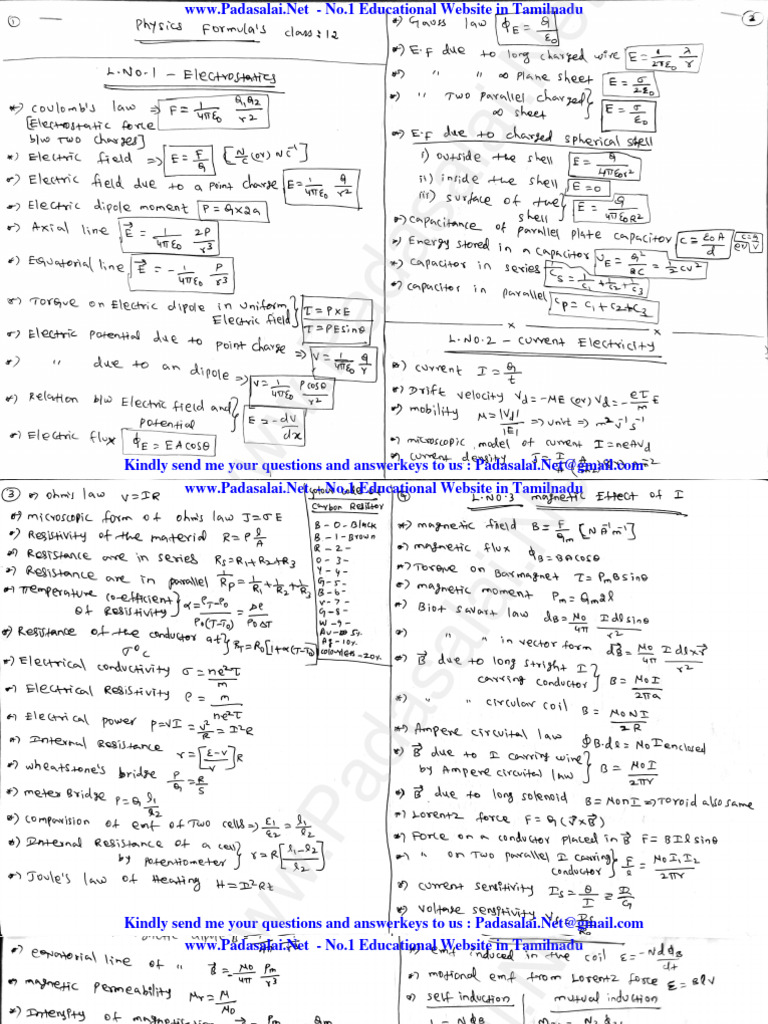 www.Padasalai.Net - No.1 Educational Website in Tamilnadu
①
Physics Formula's class:12
L.No.1 - Electrostatics
*) coulomb's law => F = 1/4πε₀ Q₁Q₂/r²
[Electrostatic force
b/w two charges]
*) Electric field => E = F/Q [N/C (or) NC⁻¹]
*) Electric field due to a point charge E = 1/4πε₀ Q/r²
*) Electric dipole moment P = Q×2a
*) Axial line E⃗ = 1/4πε₀ 2P/r³
*) Equatorial line E⃗ = -1/4πε₀ P/r³
*) Torque on Electric dipole in uniform Electric field } τ = P×E
τ = PE sinθ
*) Electric potential due to point charge => V = 1/4πε₀ Q/r
*) " due to an dipole => V = 1/4πε₀ Pcosθ/r²
*) Relation b/w Electric field and potential } E = -dV/dx
*) Electric flux Φ_E = EA cosθ
②
*) Gauss law Φ_E = Q/ε₀
*) E.F due to long charged wire E = 1/2πε₀ λ/r
*) " " ∞ plane sheet E = σ/2ε₀
*) " Two parallel charged ∞ sheet } E = σ/ε₀
*) E.F due to charged spherical shell
i) outside the shell E = Q/4πε₀r²
ii) inside the shell E = 0
iii) surface of the shell E = Q/4πε₀R²
*) capacitance of parallel plate capacitor C = ε₀A/d
*) Energy stored in a capacitor U_E = Q²/2C = 1/2 CV²
*) capacitor in series C_S = 1/C₁ + 1/C₂ + 1/C₃
*) capacitor in parallel C_P = C₁ + C₂ + C₃
L.No.2 - current Electricity
*) current I = Q/t
*) Drift velocity V_d = -ME (or) V_d = -eτ/m E
*) mobility M = |V_d|/|E| => unit => m²v⁻¹s⁻¹
*) microscopic model of current I = neAVd
*) current density J = I/A
Kindly send me your questions and answerkeys to us : Padasalai.Net@gmail.com
www.Padasalai.Net - No.1 Educational Website in Tamilnadu
③ *) ohm's law V = IR
*) microscopic form of ohm's law J = σE
*) Resistivity of the material R = ρ l/A
*) Resistance are in series R_S = R₁+R₂+R₃
*) Resistance are in parallel 1/R_P = 1/R₁ + 1/R₂ + 1/R₃
*) Temperature co-efficient of Resistivity } α = ρ_T-ρ₀/ρ₀(T-T₀) = Δρ/ρ₀ΔT
*) Resistance of the conductor at σ°C } R_T = R₀[1+α(T-T₀)]
*) Electrical conductivity σ = ne²τ/m
*) Electrical Resistivity ρ = m/ne²τ
*) Electrical power P = VI = V²/R = I²R
*) Internal Resistance r = [ε-V/V]R
*) wheatstone's bridge P/Q = R/S
*) meter Bridge P = Q l₁/l₂
*) comparision of emf of Two cells => ε₁/ε₂ = l₁/l₂
*) Internal Resistance of a cell by potentiometer } r = R[l₁-l₂/l₂]
*) Joule's law of Heating H = I²Rt
Carbon Resistor
B - 0 - Black
B - 1 - Brown
R - 2 -
O - 3 -
Y - 4 -
G - 5 -
B - 6 -
V - 7 -
G - 8 -
W - 9 -
Au - 5%
Ag - 10%
colourless - 20%
L.No.3 magnetic Effect of I
*) magnetic field B = F/q_m [NA⁻¹m⁻¹]
*) magnetic flux Φ_B = BA cosθ
*) Torque on Barmagnet τ = P_m B sinθ
*) magnetic moment P_m = q_m 2l
*) Biot savart law dB = M₀/4π I dl sinθ/r²
*) " " in vector form dB⃗ = M₀/4π I dl×r̂/r²
*) B⃗ due to long stright I carring conductor } B = M₀I/2πa
*) " " circular coil B = M₀NI/2R
*) Ampere circuital law ∮B·dl = M₀I enclosed
*) B⃗ due to I carring wire by Ampere circuital law } B = M₀I/2πr
*) B⃗ due to long solenoid B = M₀nI => Toroid also same
*) Lorentz force F = Q(v⃗×B⃗)
*) Force on a conductor placed in B⃗ F = BIl sinθ
*) " on Two parallel I carring conductor } F/l = M₀I₁I₂/2πr
*) current sensitivity I_S = θ/I
*) voltage sensitivity
Kindly send me your questions and answerkeys to us : Padasalai.Net@gmail.com
www.Padasalai.Net - No.1 Educational Website in Tamilnadu
*) equatorial line of " B⃗ = -M₀/4π P_m/r³
*) magnetic permeability M_r = M/M₀
*) Intensity of
*) emf induced in the coil ε = -NdΦ_B/dt
*) motional emf from Lorentz force ε = Blv
*) self induction | mutual induction